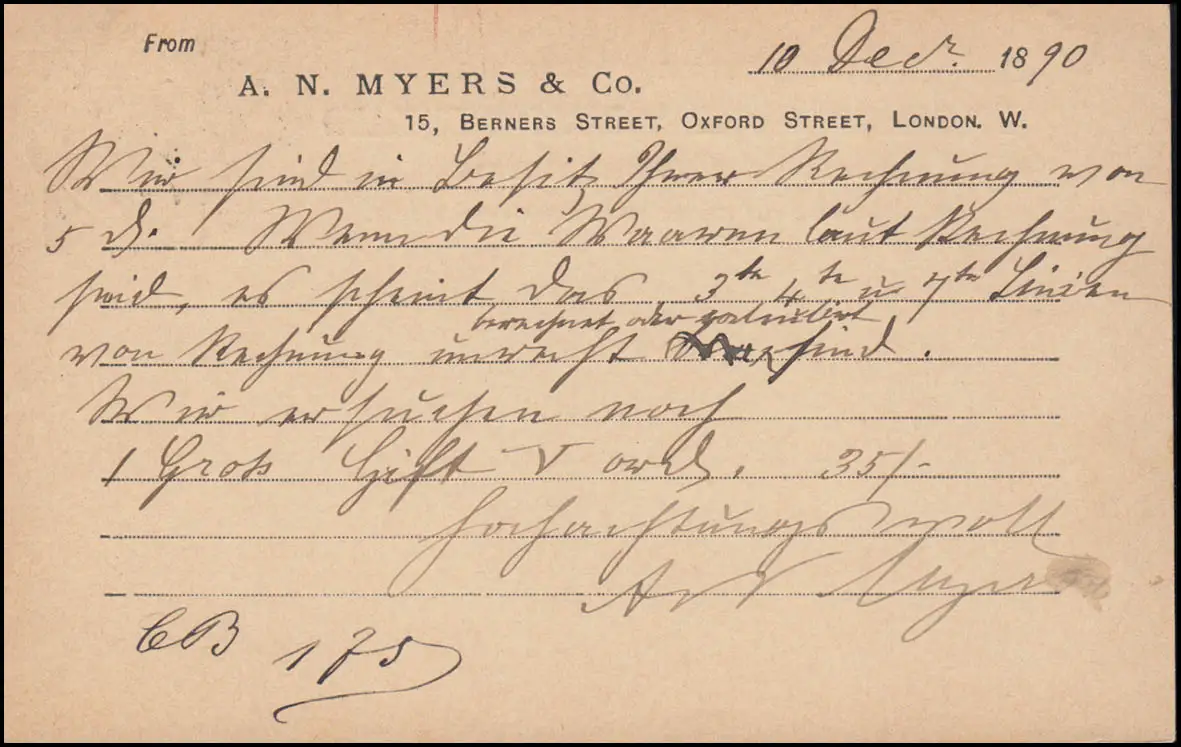 From
10 Decr. 1890
A. N. MYERS & Co.
15, BERNERS STREET, OXFORD STREET, LONDON. W.
Wir sind in Besitz Ihrer Rechnung von
5 d. Wenn die Waaren laut Rechnung
sind, es scheint das 3te 4te u 7te Linien
berechnet oder calculirt
von Rechnung unrecht sind.
Wir ersuchen noch
1 Gross V ord. 35/-
Hochachtungsvoll
A N Myers
CB 175